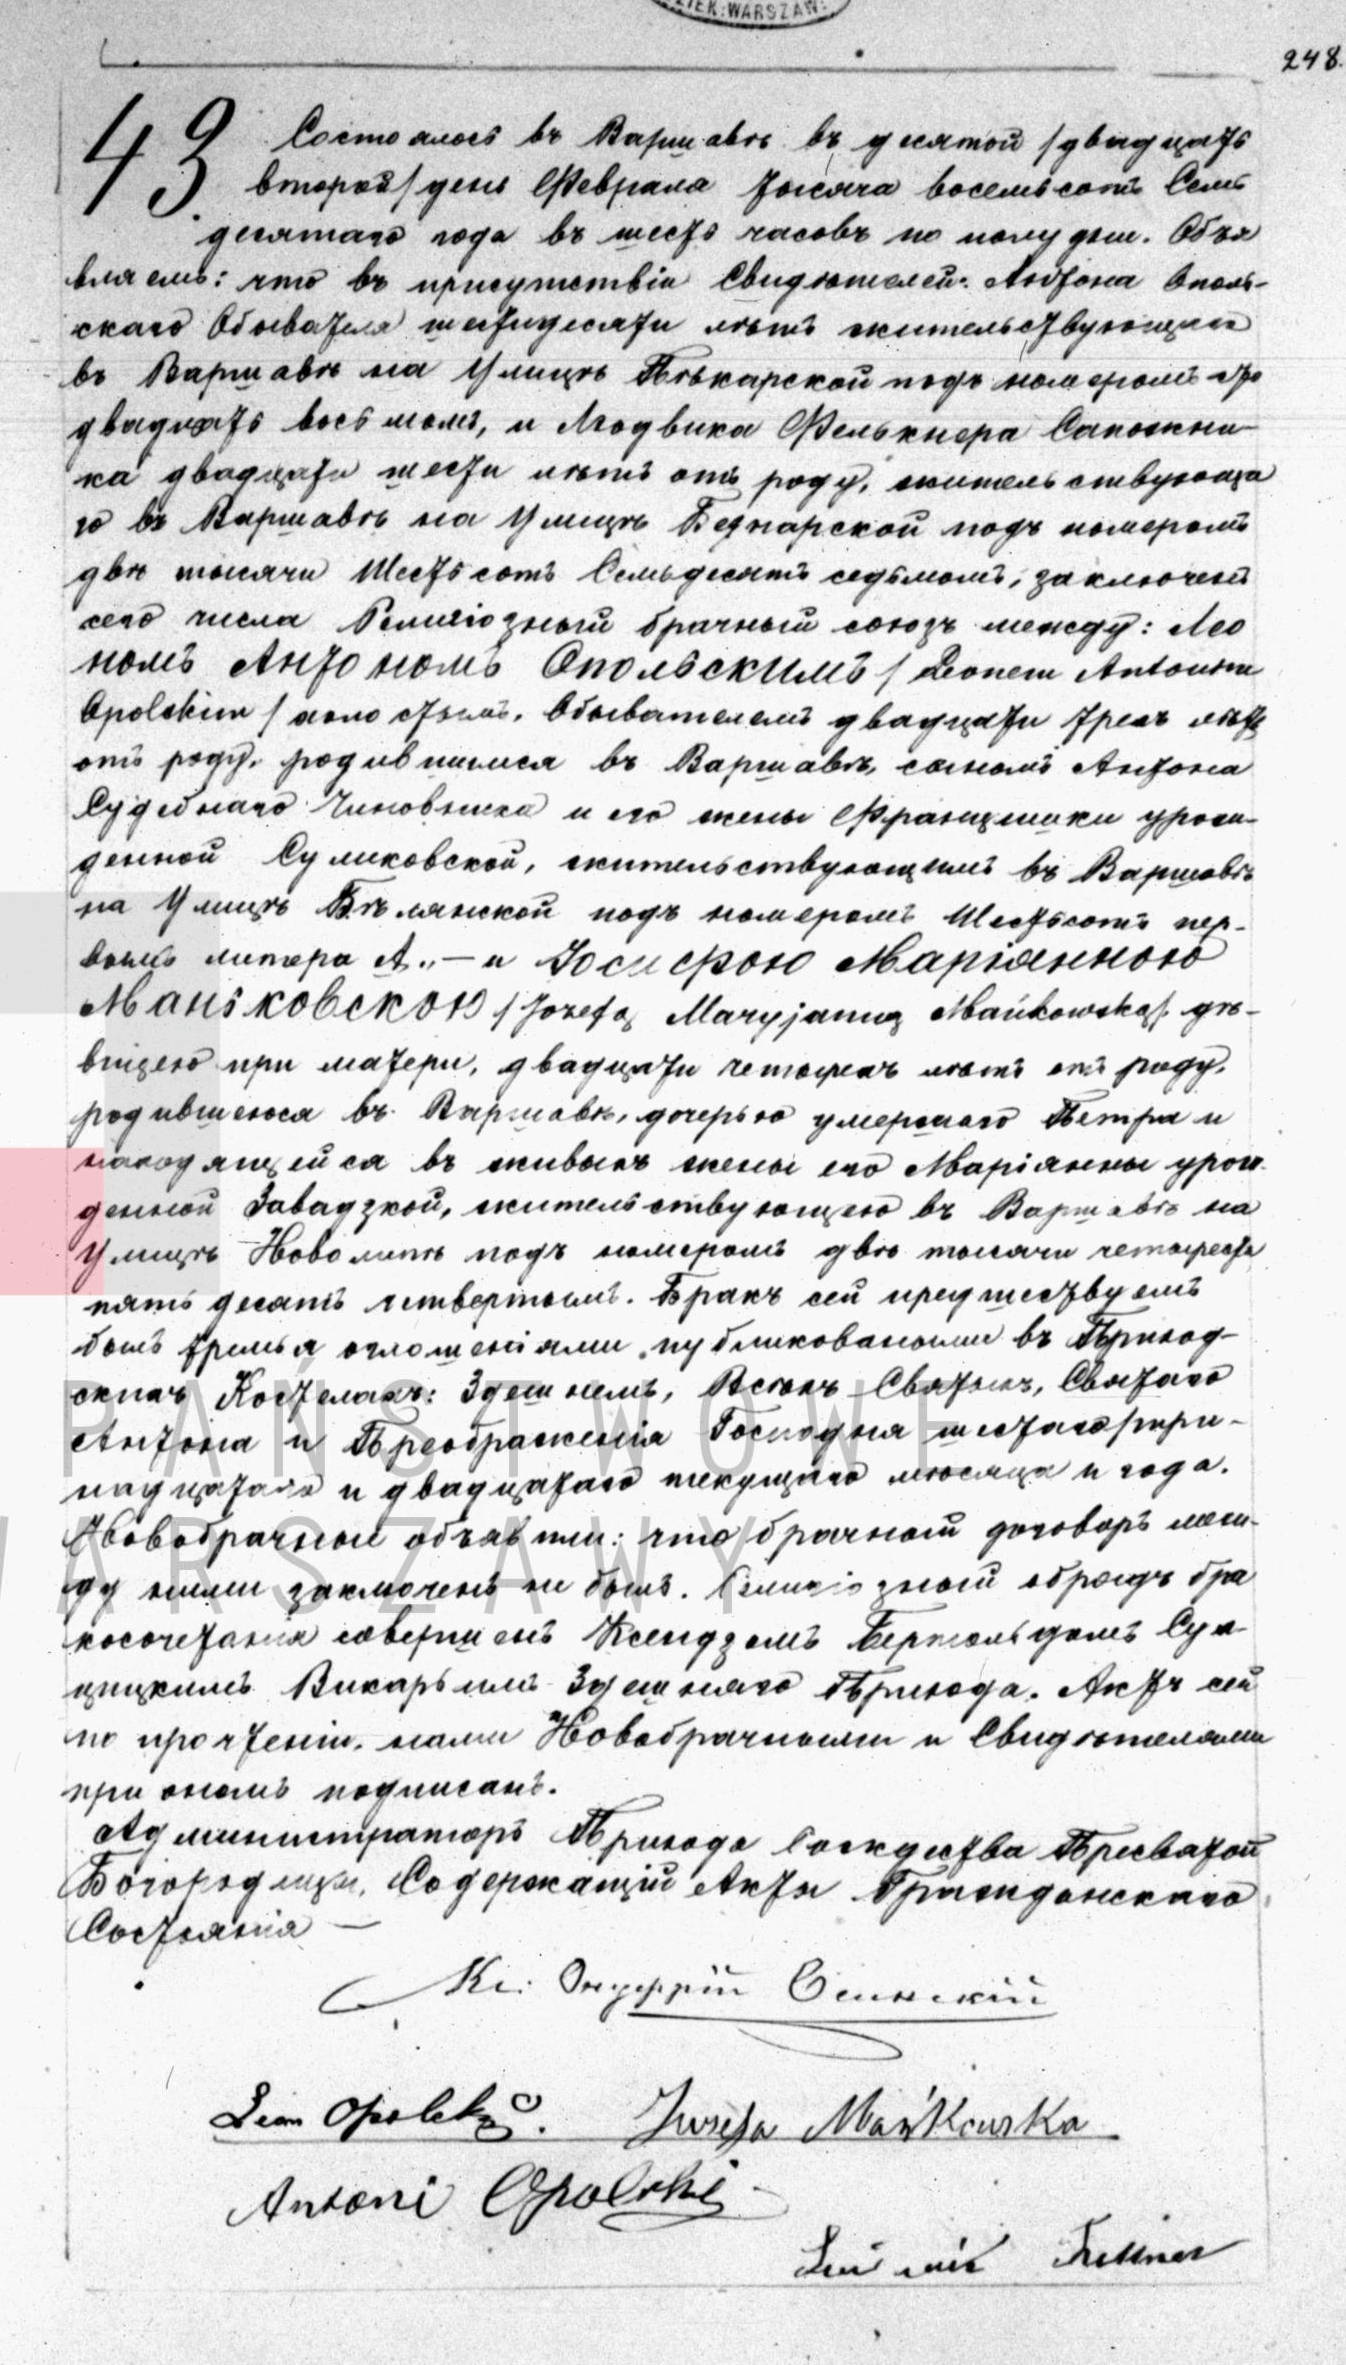 ZIEK. WARSZAW.
248.
43. Состоялось въ Варшавѣ въ десятой /двадцать
второй/ день Февраля тысяча восемьсотъ Семь
десятаго года въ шесть часовъ по полудни. Объя
вляемъ: что въ присутствіи Свидѣтелей: Антона Ополь-
скаго Обывателя шестидесяти лѣтъ жительствующаго
въ Варшавѣ на Улицѣ Пѣкарской подъ номеромъ сто
двадцать восьмомъ, и Людвика Фелькнера Сапожни-
ка двадцати шести лѣтъ отъ роду, жительствующа
го въ Варшавѣ на Улицѣ Беднарской подъ номеромъ
двѣ тысячи Шестьсотъ Семьдесятъ седьмомъ, заключенъ
сего числа Религіозный брачный союзъ между: Лео
номъ Антономъ Опольскимъ /Leonem Antonim
Opolskim/ холостымъ, Обывателемъ двадцати трехъ лѣтъ
отъ роду, родившимся въ Варшавѣ, сыномъ Антона
Судебнаго Чиновника и его жены Францишки урож-
денной Сумиковской, жительствующимъ въ Варшавѣ
на Улицѣ Бѣлянской подъ номеромъ Шестьсотъ пер-
вымъ литера А. — и Юсифою Маріянною
Маньковскою /Jozefą Maryjanną Mańkowską/ дѣ-
вицею при матери, двадцати четырехъ лѣтъ отъ роду,
родившеюся въ Варшавѣ, дочерью умершаго Петра и
находящейся въ живыхъ жены его Маріянны урож-
денной Завадзкой, жительствующею въ Варшавѣ на
Улицѣ Новолипѣ подъ номеромъ двѣ тысячи четыреста
пятьдесятъ четвертымъ. Бракъ сей предшествуемъ
былъ тремя оглошеніями публикованными въ Приход-
скихъ Костелахъ: Здешнемъ, Всѣхъ Святыхъ, Святаго
Антона и Преображенія Господня шестаго, три-
надцатаго и двадцатаго текущаго мѣсяца и года.
Новобрачные объявили: что брачный договоръ меж-
ду ними заключенъ не былъ. Религіозный обрядъ бра
косочетанія совершенъ Ксендзомъ Бертольдомъ
Викарымъ Здешняго Прихода. Актъ сей
по прочтеніи, нами Новобрачными и Свидѣтелями
при ономъ подписанъ.
Администраторъ Прихода Рождества Пресвятой
Богородицы, Содержащій Акты Гражданскаго
Состоянія —
Кс: Онуфрій Осинскій
Leon Opolski. Jozefa Mańkowska
Antoni Opolski
Ludwik Felkner
PAŃSTWOWE
WARSZAWY